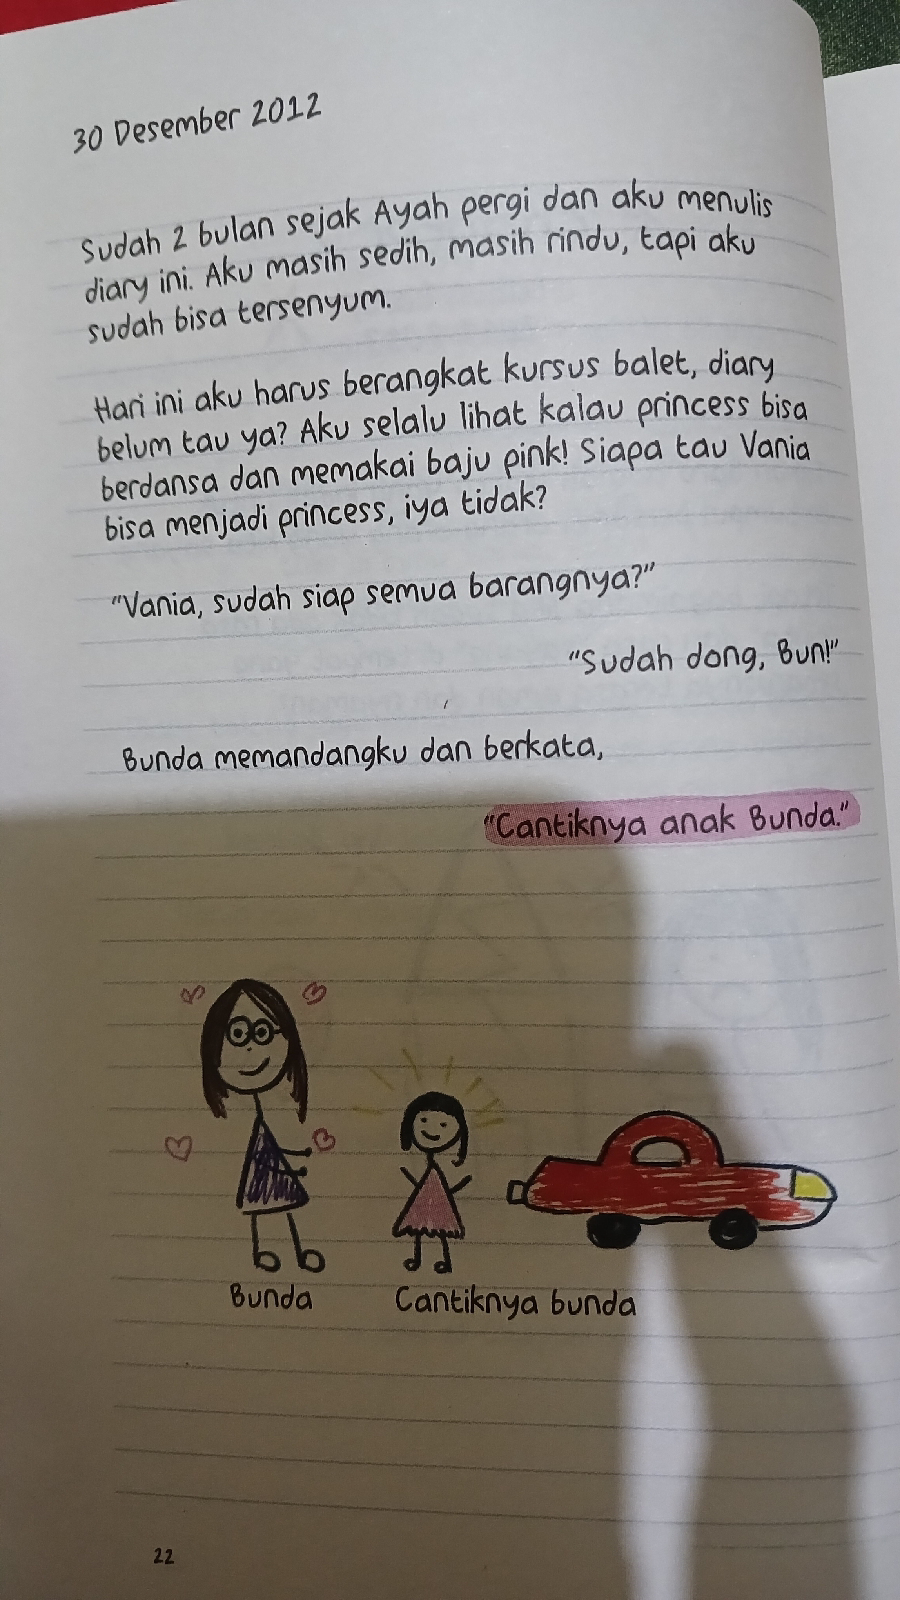 30 Desember 2012
Sudah 2 bulan sejak Ayah pergi dan aku menulis
diary ini. Aku masih sedih, masih rindu, tapi aku
sudah bisa tersenyum.
Hari ini aku harus berangkat kursus balet, diary
belum tau ya? Aku selalu lihat kalau princess bisa
berdansa dan memakai baju pink! Siapa tau Vania
bisa menjadi princess, iya tidak?
"Vania, sudah siap semua barangnya?"
"Sudah dong, Bun!"
Bunda memandangku dan berkata,
"Cantiknya anak Bunda."
Bunda
Cantiknya bunda
22